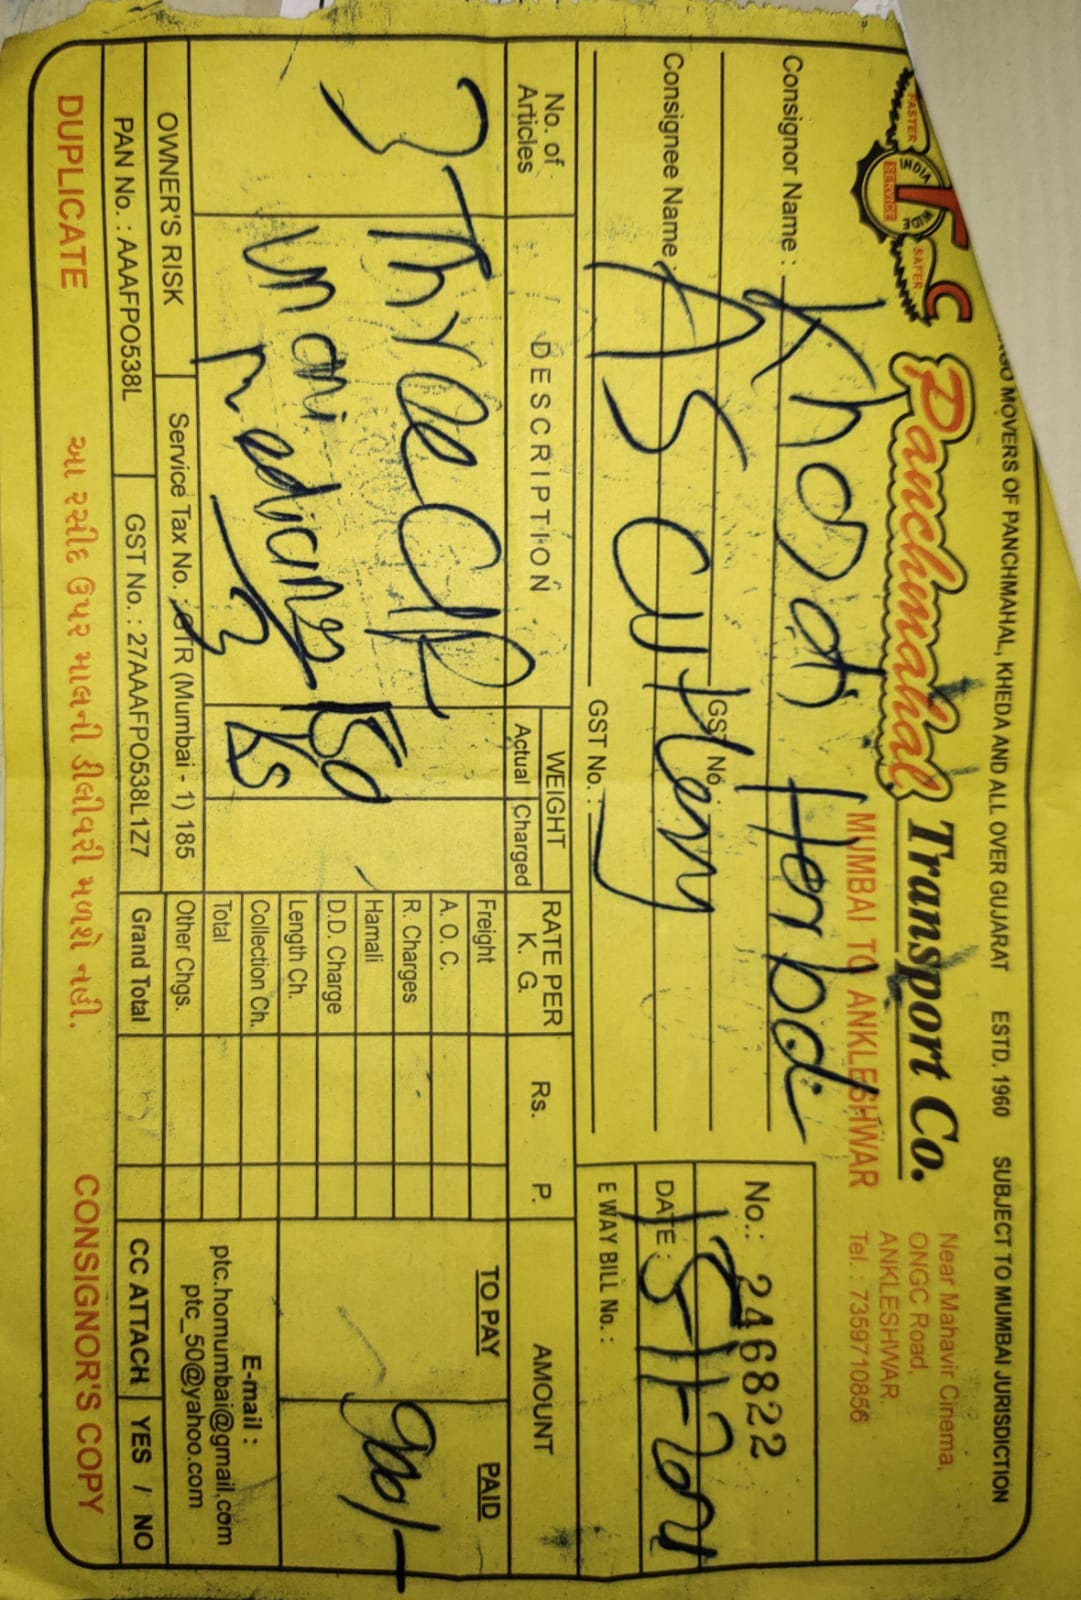 GO MOVERS OF PANCHMAHAL, KHEDA AND ALL OVER GUJARAT ESTD. 1960 SUBJECT TO MUMBAI JURISDICTION
FASTER SAFER
INDIA
SERVICE
Panchmahal Transport Co.
MUMBAI TO ANKLESHWAR
Near Mahavir Cinema,
ONGC Road,
ANKLESHWAR.
Tel. : 7359710856
Consignor Name : Khodal Herbal
GST No.
Consignee Name :
GST No. :
No.: 246822
DATE :
E WAY BILL No. :
No. of Articles
DESCRIPTION
WEIGHT
Actual Charged
RATE PER K. G.
Rs. P.
AMOUNT
TO PAY PAID
3 Three
Unani
medicines
50
KS
Freight
A. O. C.
R. Charges
Hamali
D.D. Charge
Length Ch.
Collection Ch.
Total
Other Chgs.
Grand Total
900/-
OWNER'S RISK
Service Tax No. : GTR (Mumbai - 1) 185
PAN No. : AAAFPO538L
GST No. : 27AAAFPO538L1Z7
E-mail :
ptc.homumbai@gmail.com
ptc_50@yahoo.com
CC ATTACH YES / NO
DUPLICATE
આ રસીદ ઉપર માલની ડીલીવરી મળશે નહી.
CONSIGNOR'S COPY